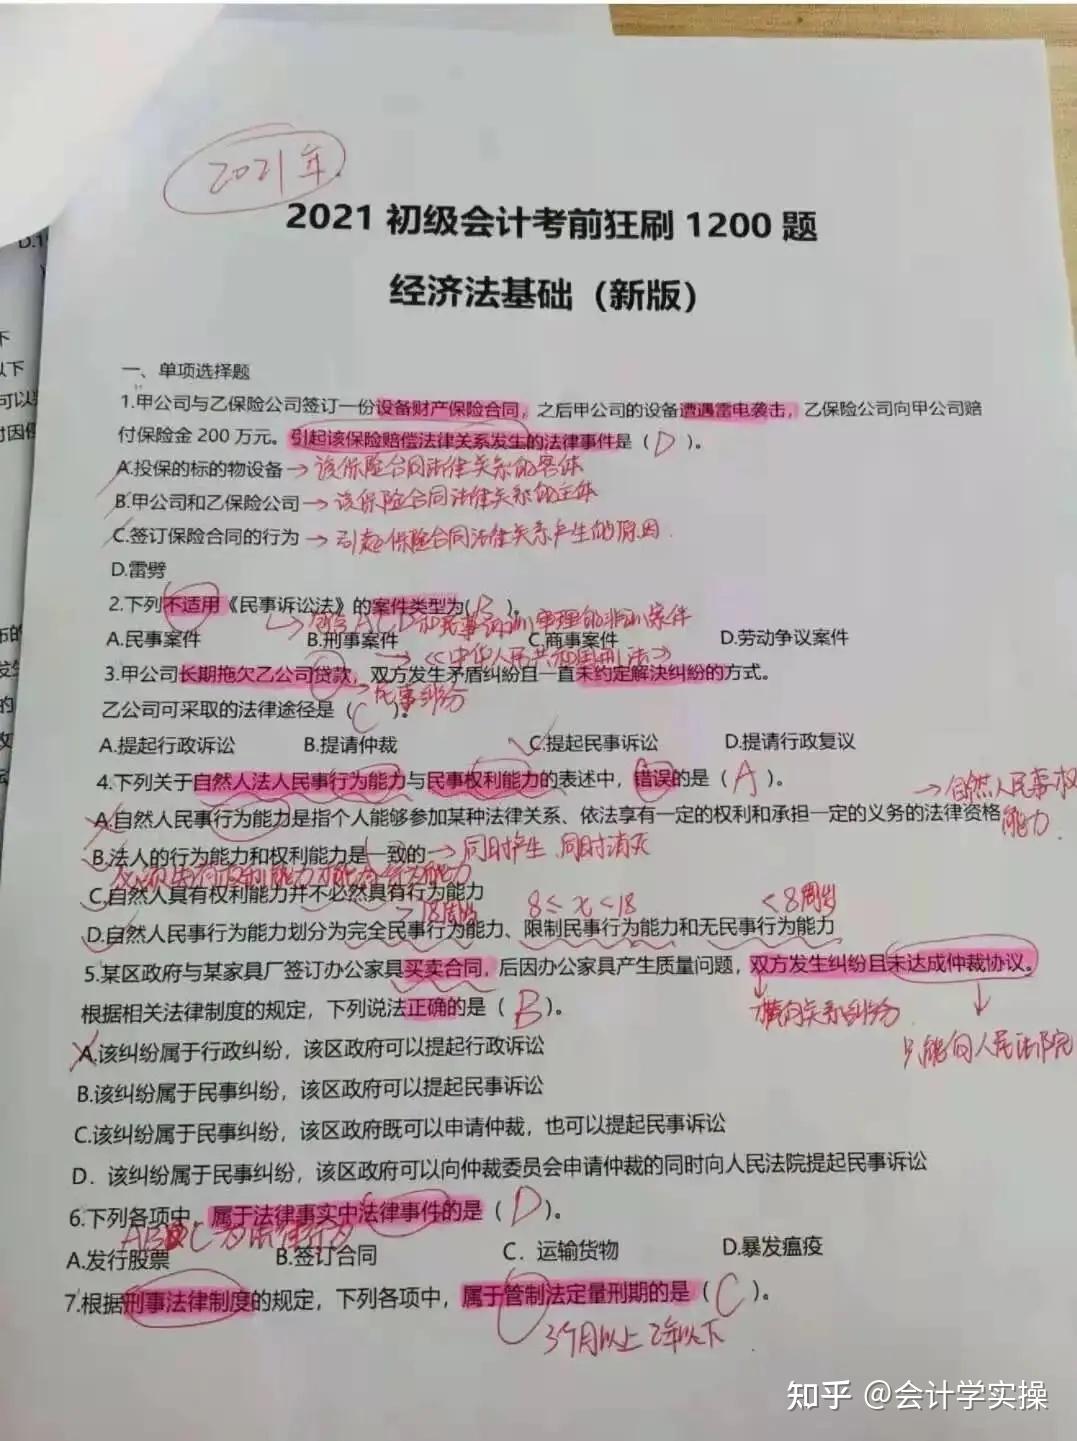 2021年
2021 初级会计考前狂刷 1200 题
经济法基础（新版）
一、单项选择题
1.甲公司与乙保险公司签订一份设备财产保险合同，之后甲公司的设备遭遇雷电袭击，乙保险公司向甲公司赔
付保险金 200 万元。引起该保险赔偿法律关系发生的法律事件是（ D ）。
A.投保的标的物设备→该保险合同法律关系的客体
B.甲公司和乙保险公司→该保险合同法律关系的主体
C.签订保险合同的行为→引起保险合同法律关系产生的原因
D.雷劈
2.下列不适用《民事诉讼法》的案件类型为( B )。
A.民事案件 B.刑事案件 C.商事案件 D.劳动争议案件
→《中华人民共和国刑法》
3.甲公司长期拖欠乙公司贷款，双方发生矛盾纠纷且一直未约定解决纠纷的方式。
→民事纠纷
乙公司可采取的法律途径是（ C ）。
A.提起行政诉讼 B.提请仲裁 C.提起民事诉讼 D.提请行政复议
4.下列关于自然人法人民事行为能力与民事权利能力的表述中，错误的是（ A ）。
→自然人民事权
能力
A.自然人民事行为能力是指个人能够参加某种法律关系、依法享有一定的权利和承担一定的义务的法律资格
B.法人的行为能力和权利能力是一致的→同时产生 同时消灭
C.自然人具有权利能力并不必然具有行为能力
>18周岁 8≤x<18 <8周岁
D.自然人民事行为能力划分为完全民事行为能力、限制民事行为能力和无民事行为能力
5.某区政府与某家具厂签订办公家具买卖合同，后因办公家具产生质量问题，双方发生纠纷且未达成仲裁协议。
根据相关法律制度的规定，下列说法正确的是（ B ）。
横向关系纠纷
只能向人民法院
A.该纠纷属于行政纠纷，该区政府可以提起行政诉讼
B.该纠纷属于民事纠纷，该区政府可以提起民事诉讼
C.该纠纷属于民事纠纷，该区政府既可以申请仲裁，也可以提起民事诉讼
D．该纠纷属于民事纠纷，该区政府可以向仲裁委员会申请仲裁的同时向人民法院提起民事诉讼
6.下列各项中，属于法律事实中法律事件的是（ D ）。
A.发行股票 B.签订合同 C．运输货物 D.暴发瘟疫
7.根据刑事法律制度的规定，下列各项中，属于管制法定量刑期的是（ C ）。
3个月以上 2年以下
知乎 @会计学实操